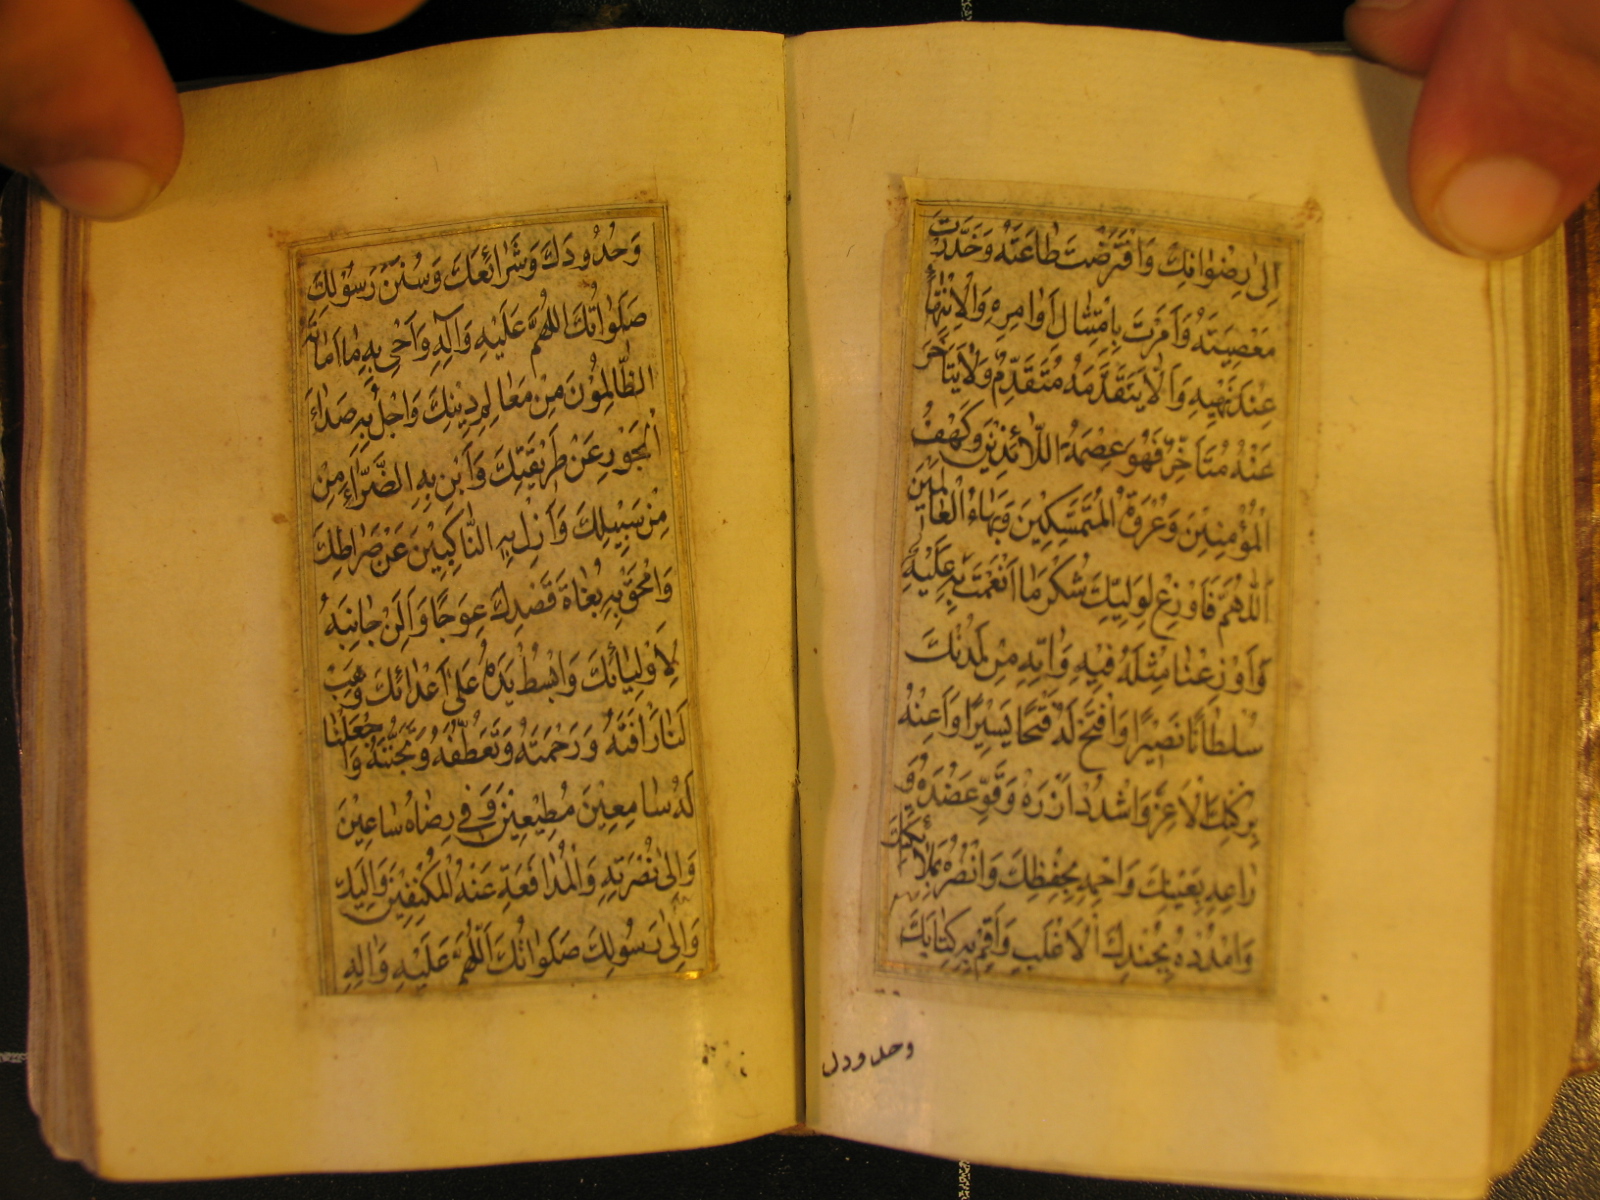 اِلىٰ رِضْوٰانِكَ وَافْتَرَضْتَ طٰاعَتَهُ وَحَذَّرْتَ
مَعْصِيَتَهُ وَاَمَرْتَ بِامْتِثٰالِ اَوٰامِرِهِ وَالْاِنْتِهٰاۤءِ
عِنْدَ نَهْيِهِ وَاَلّٰا يَتَقَدَّمَهُ مُتَقَدِّمٌ وَلٰا يَتَاَخَّرَ
عَنْهُ مُتَاَخِّرٌ فَهُوَ عِصْمَةُ اللّٰائِذِيْنَ وَكَهْفُ
الْمُؤْمِنِيْنَ وَعُرْوَةُ الْمُتَمَسِّكِيْنَ وَبَهٰاءُ الْعٰالَمِيْنَ
اَللّٰهُمَّ فَاَوْزِعْ لِوَلِيِّكَ شُكْرَ مٰا اَنْعَمْتَ بِهِ عَلَيْهِ
وَاَوْزِعْنٰا مِثْلَهُ فِيْهِ وَاٰتِهِ مِنْ لَدُنْكَ
سُلْطٰانًا نَصِيْرًا وَافْتَحْ لَهُ فَتْحًا يَسِيْرًا وَاَعِنْهُ
بِرُكْنِكَ الْاَعَزِّ وَاشْدُدْ اَزْرَهُ وَقَوِّ عَضُدَهُ وَ
رٰاعِهِ بِعَيْنِكَ وَاحْمِهِ بِحِفْظِكَ وَانْصُرْهُ بِمَلٰائِكَتِكَ
وَامْدُدْهُ بِجُنْدِكَ الْاَغْلَبِ وَاَقِمْ بِهِ كِتٰابَكَ
وحدودك
وَحُدُودَكَ وَشَرٰائِعَكَ وَسُنَنَ رَسُوْلِكَ
صَلَوٰاتُكَ اللّٰهُمَّ عَلَيْهِ وَآلِهِ وَاَحْيِ بِهِ مٰا اَمٰاتَهُ
الظّٰالِمُوْنَ مِنْ مَعٰالِمِ دِيْنِكَ وَاجْلُ بِهِ صَدٰاۤءَ
الْجَوْرِ عَنْ طَرِيْقَتِكَ وَاَبِنْ بِهِ الضَّرّٰاۤءَ مِنْ
مِنْ سَبِيْلِكَ وَاَزِلْ بِهِ النّٰاكِبِيْنَ عَنْ صِرٰاطِكَ
وَامْحَقْ بِهِ بُغٰاةَ قَصْدِكَ عِوَجًا وَاَلِنْ جٰانِبَهُ
لِاَوْلِيٰائِكَ وَابْسُطْ يَدَهُ عَلىٰ اَعْدٰائِكَ وَهَبْ
لَنٰا رَاْفَتَهُ وَرَحْمَتَهُ وَتَعَطُّفَهُ وَتَحَنُّنَهُ وَاجْعَلْنٰا
لَهُ سٰامِعِيْنَ مُطِيْعِيْنَ وَفِي رِضٰاهُ سٰاعِيْنَ
وَاِلىٰ نُصْرَتِهِ وَالْمُدٰافَعَةِ عَنْهُ مُكْنِفِيْنَ وَاِلَيْكَ
وَاِلىٰ رَسُوْلِكَ صَلَوٰاتُكَ اَللّٰهُمَّ عَلَيْهِ وَاٰلِهِ